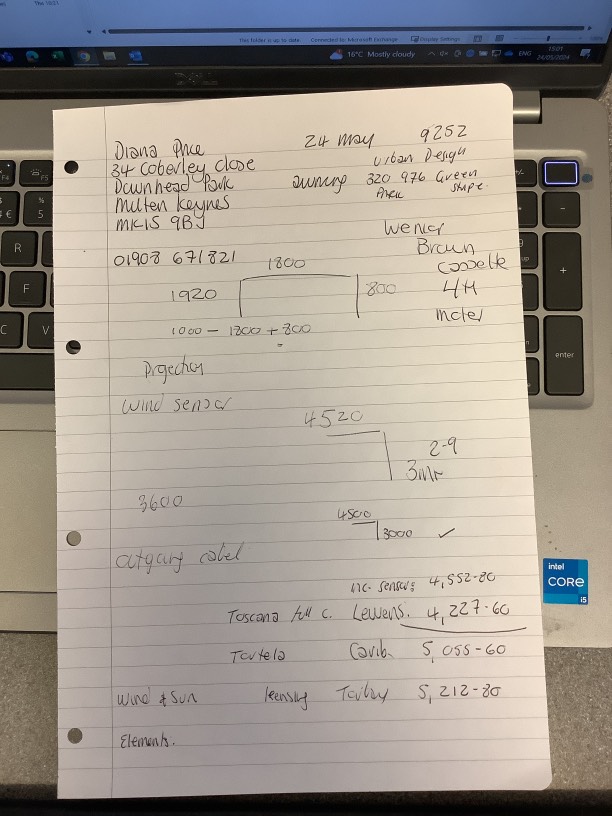 This folder is up to date. Connected to: Microsoft Exchange Display Settings
16°C Mostly cloudy ENG 15:01
24/05/2024
24 May 9252
Diana Price
34 Coberley Close
Downhead Park
Multen Keynes
MK15 9BJ
Urban Design
awning 320 976 Green
stripe
01908 671821
Brown
Cassette
4M
meter
1800
1920 800
1000 - 1800 + 800
Projection
Wind sensor
4520
2-9
3Mr
3600
4500
3000 ✓
outgoing cabel
inc. sensors 4,552-80
Toscana full c. Lewens. 4,227-60
Carib. 5,055-60
Wind & Sun Torbay 5,212-80
Elements.
F4
F5
%
5
€
R
F
C
V
+
-
enter
intel
CORE
i5